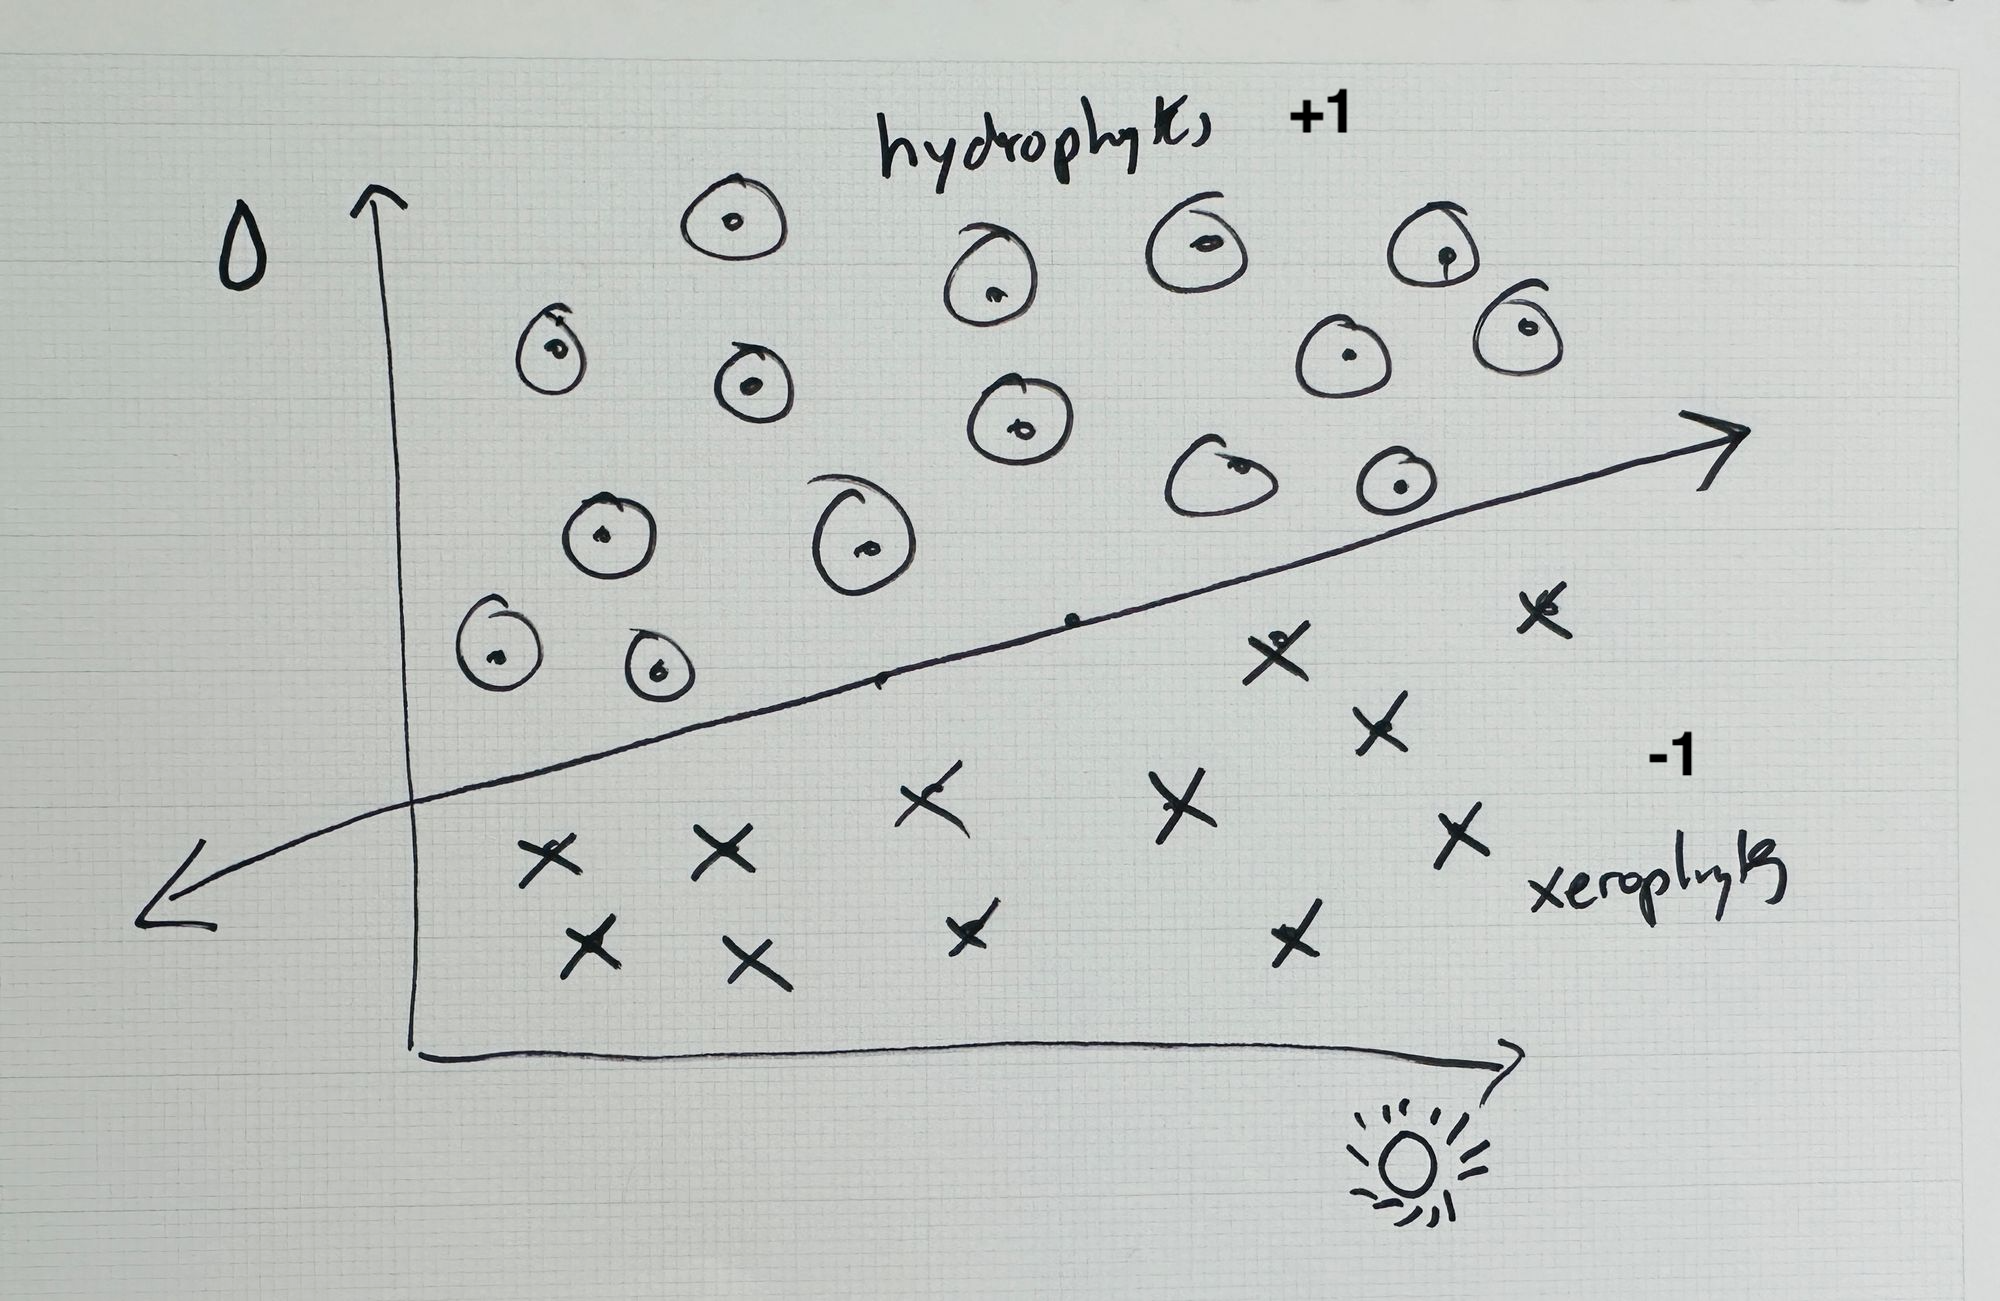 hydrophytes +1
-1
xerophytes